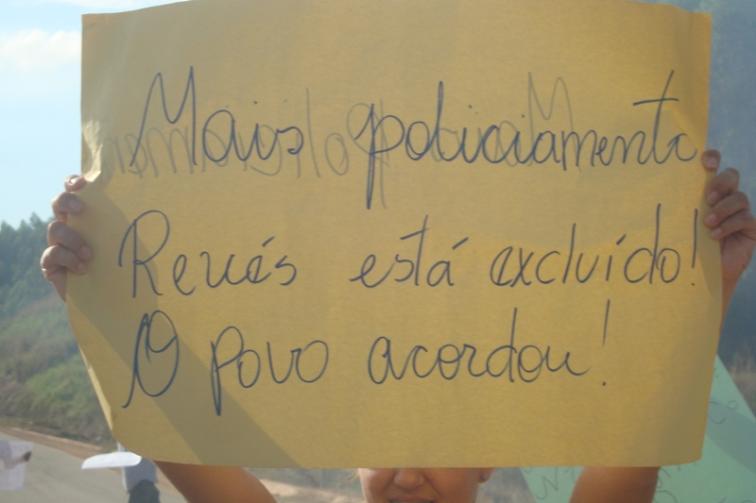 Mais policiamento
Revés está excluído!
O povo acordou!